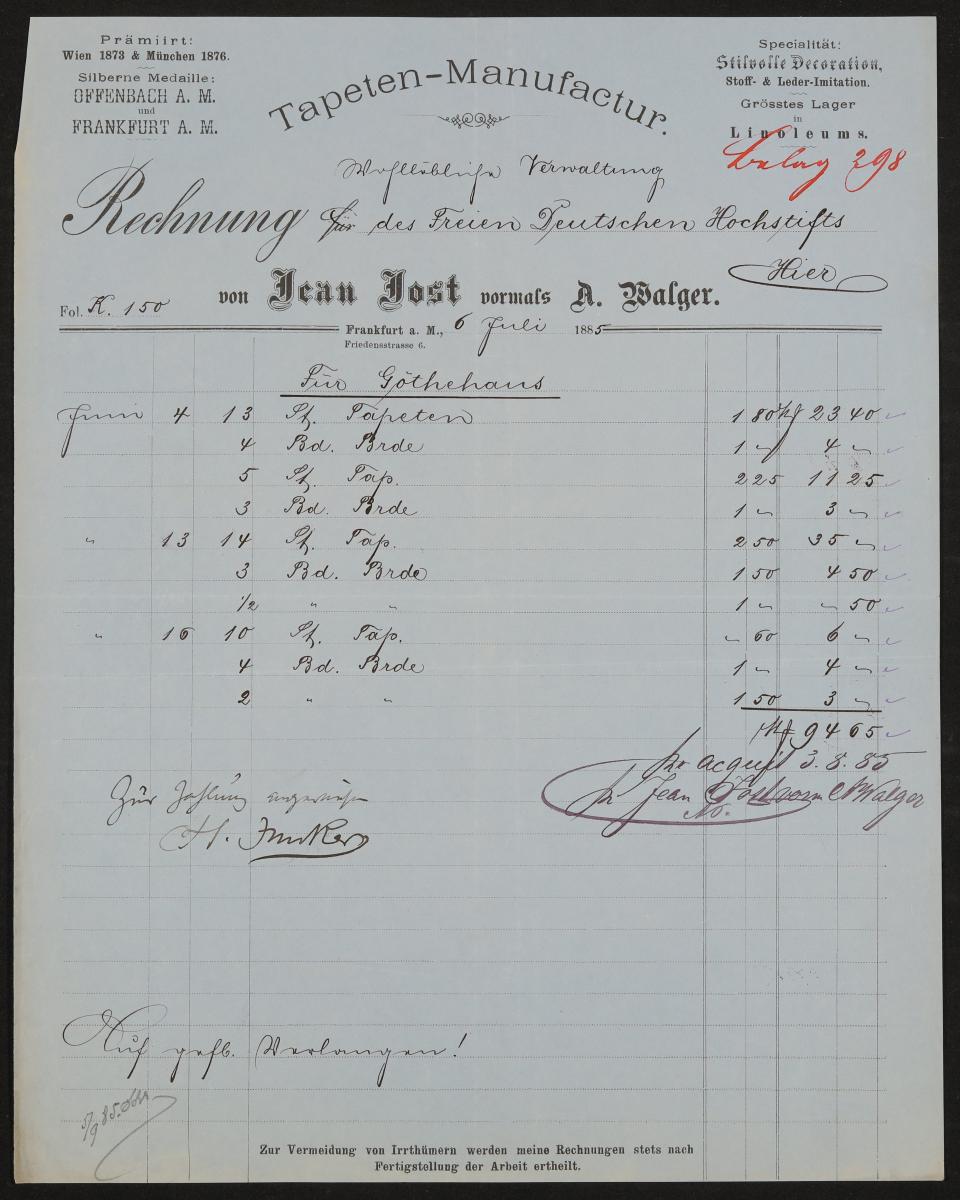 Prämiirt:
Wien 1873 & München 1876.
Silberne Medaille:
OFFENBACH A. M.
und
FRANKFURT A. M.
Tapeten-Manufactur.
Specialität:
Stilvolle Decoration,
Stoff- & Leder-Imitation.
Grösstes Lager
in
Linoleums.
Beleg 298
Wohllöbliche Verwaltung
Rechnung für des Freien Deutschen Hochstifts
Hier
von Jean Jost vormals A. Walger.
Fol. K. 150
Frankfurt a. M., 6 Juli 1885
Friedensstrasse 6.
Für Göthehaus
Juni 4 13 St. Tapeten 1 80 Mk 23 40
4 Bd. Brde 1 „ 4 „
5 St. Tap. 2 25 11 25
3 Bd. Brde 1 „ 3 „
„ 13 14 St. Tap. 2 50 35 „
3 Bd. Brde 1 50 4 50
1/2 „ „ 1 „ „ 50
„ 16 10 St. Tap. „ 60 6 „
4 Bd. Brde 1 „ 4 „
2 „ „ 1 50 3 „
Mk 94 65
pr acquit 3. 8. 85
Zur Zahlung angewiesen
pr Jean Jost vorm A Walger
H. Junker
Auf gefl. Verlangen!
5/9 85.
Zur Vermeidung von Irrthümern werden meine Rechnungen stets nach
Fertigstellung der Arbeit ertheilt.